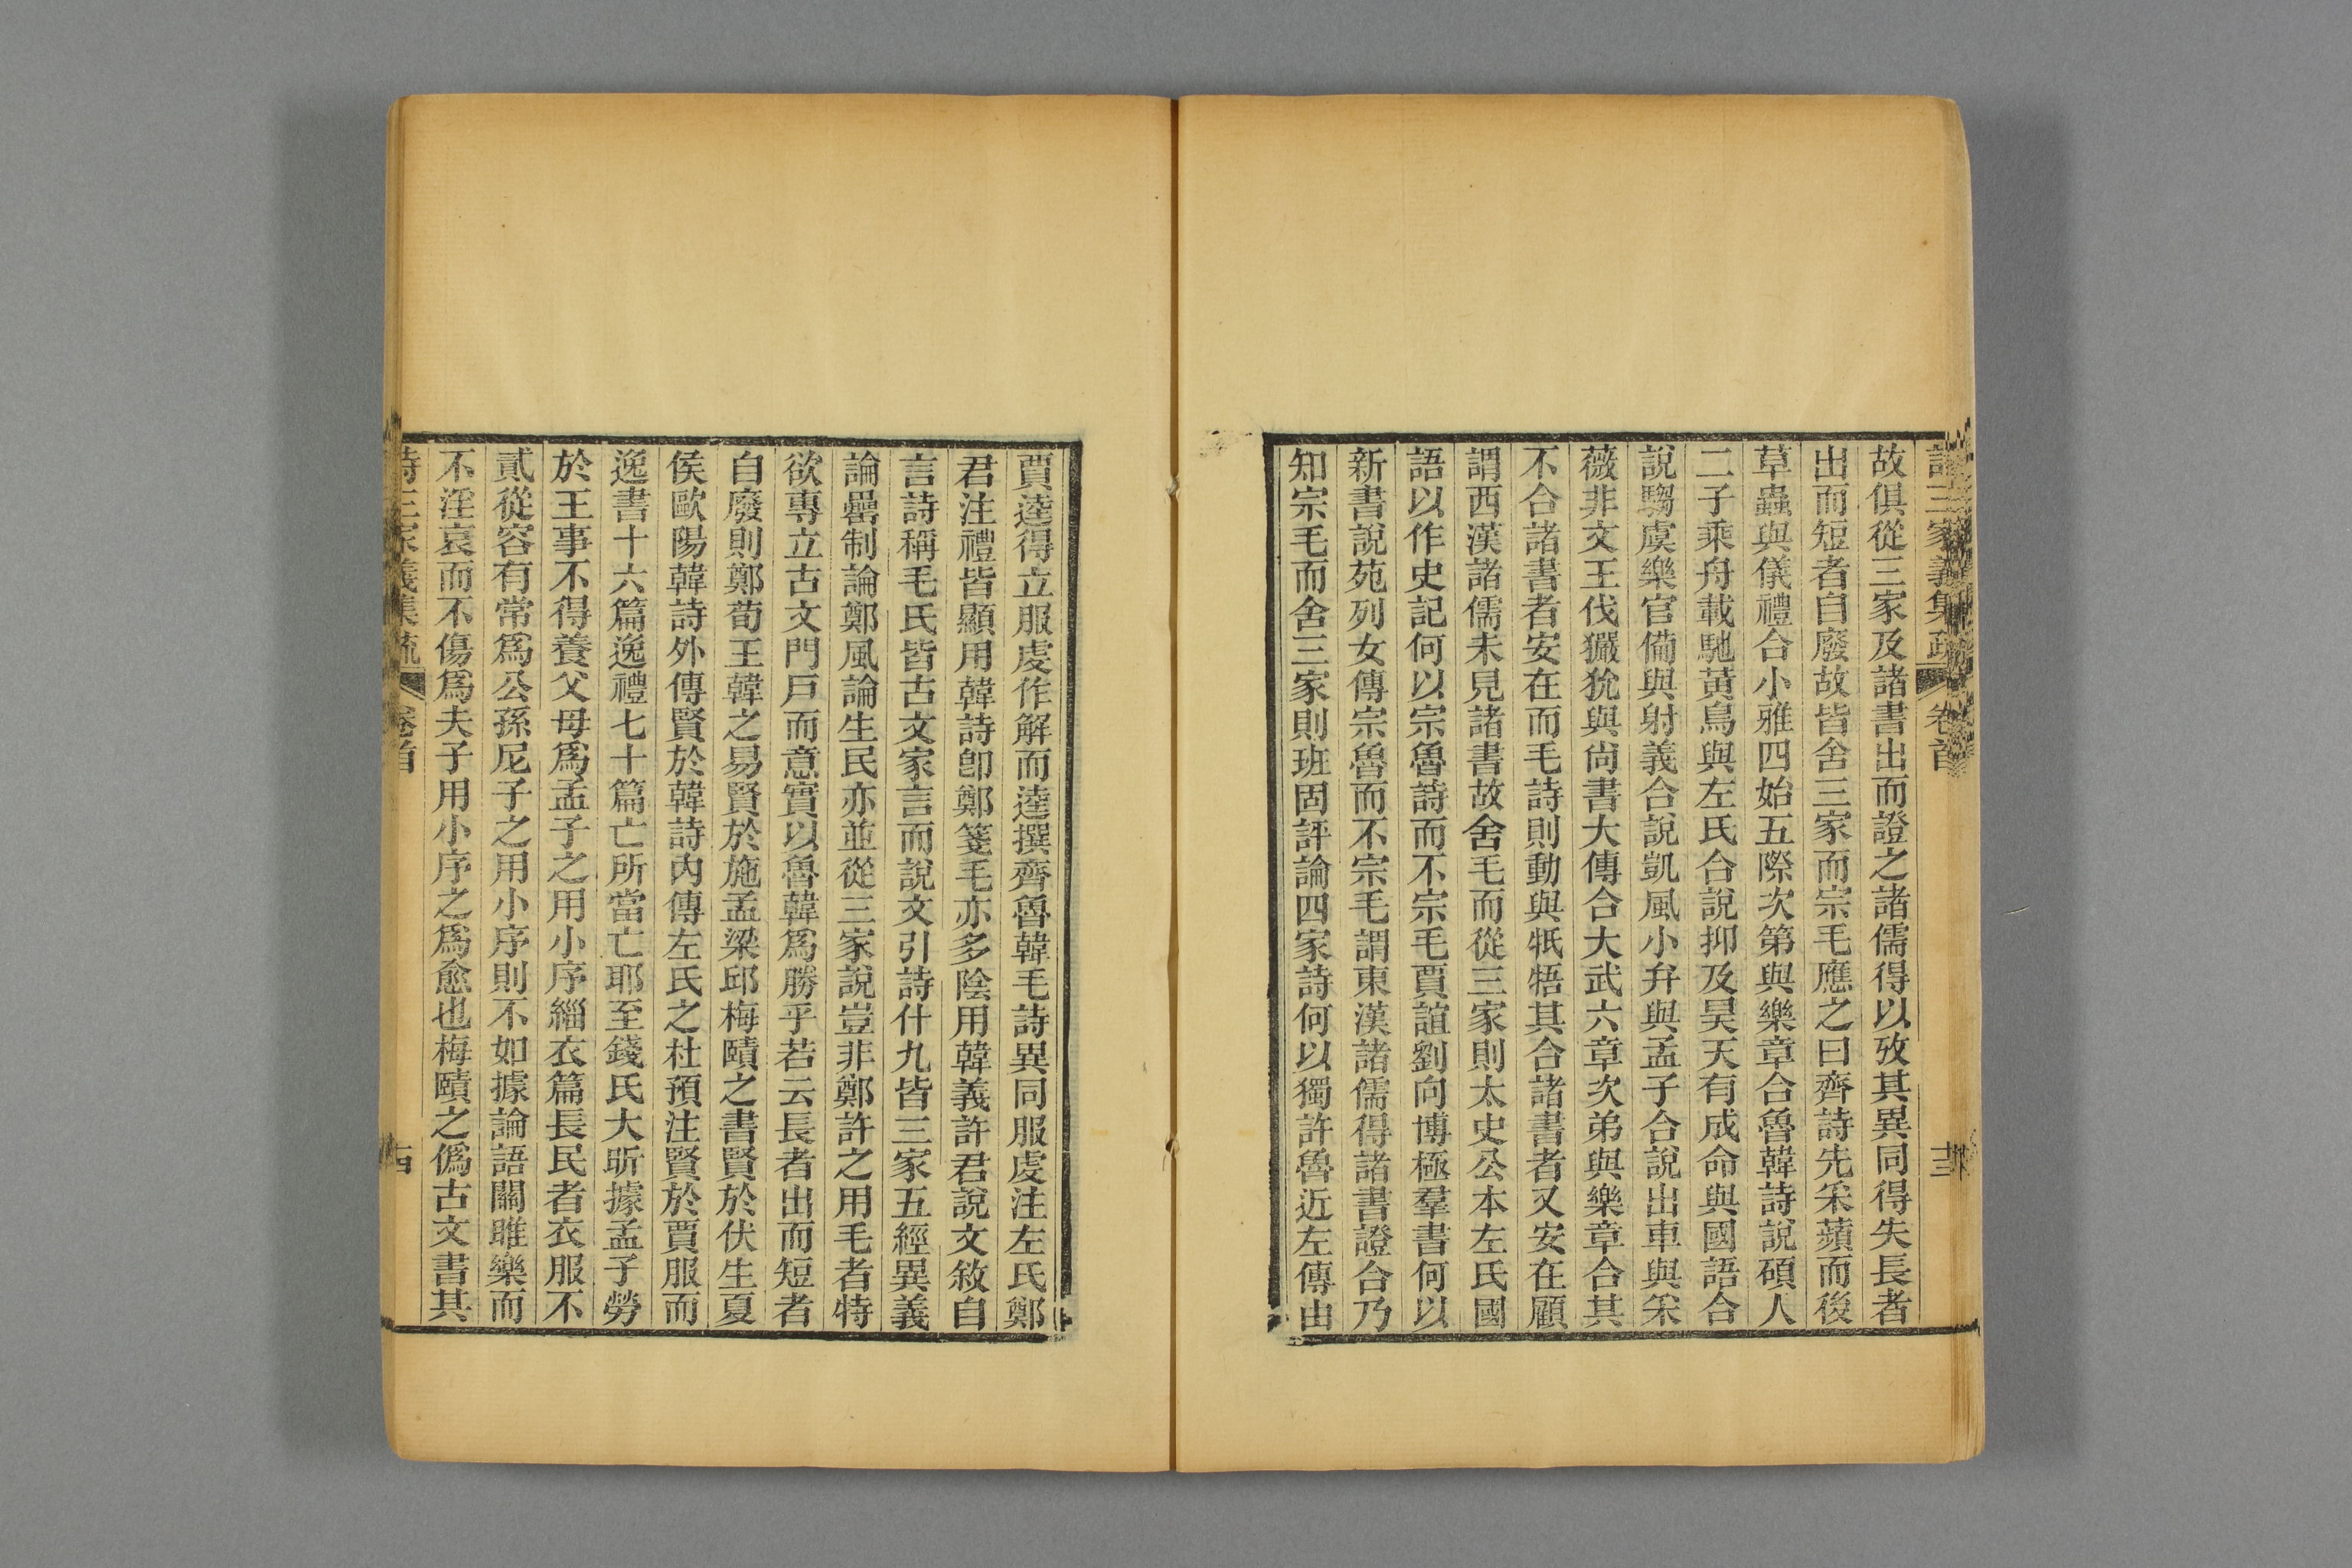 詩三家義集疏 卷首 十三
故俱從三家及諸書出而證之諸儒得以攷其異同得失長者
出而短者自廢故皆舍三家而宗毛應之曰齊詩先采蘋而後
草蟲與儀禮合小雅四始五際次第與樂章合魯韓詩說碩人
二子乘舟載馳黃鳥與左氏合說抑及昊天有成命與國語合
說騶虞樂官備與射義合說凱風小弁與孟子合說出車與采
薇非文王伐玁狁與尙書大傳合大武六章次弟與樂章合其
不合諸書者安在而毛詩則動與牴牾其合諸書者又安在顧
謂西漢諸儒未見諸書故舍毛而從三家則太史公本左氏國
語以作史記何以宗魯詩而不宗毛賈誼劉向博極羣書何以
新書說苑列女傳宗魯而不宗毛謂東漢諸儒得諸書證合乃
知宗毛而舍三家則班固評論四家詩何以獨許魯近左傳由
賈逵得立服虔作解而逵撰齊魯韓毛詩異同服虔注左氏鄭
君注禮皆顯用韓詩卽鄭箋毛亦多陰用韓義許君說文敘自
言詩稱毛氏皆古文家言而說文引詩什九皆三家五經異義
論罍制論鄭風論生民亦並從三家說豈非鄭許之用毛者特
欲專立古文門戶而意實以魯韓爲勝乎若云長者出而短者
自廢則鄭荀王韓之易賢於施孟梁邱梅賾之書賢於伏生夏
侯歐陽韓詩外傳賢於韓詩內傳左氏之杜預注賢於賈服而
逸書十六篇逸禮七十篇亡所當亡耶至錢氏大昕據孟子勞
於王事不得養父母爲孟子之用小序緇衣篇長民者衣服不
貳從容有常爲公孫尼子之用小序則不如據論語關雎樂而
不淫哀而不傷爲夫子用小序之爲愈也梅賾之僞古文書其
詩三家義集疏 卷首 十四